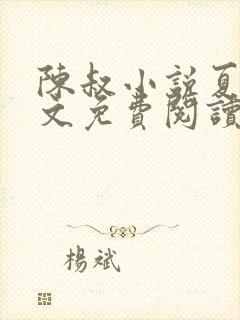 陳叔小說夏
文免費閱讀
楊斌